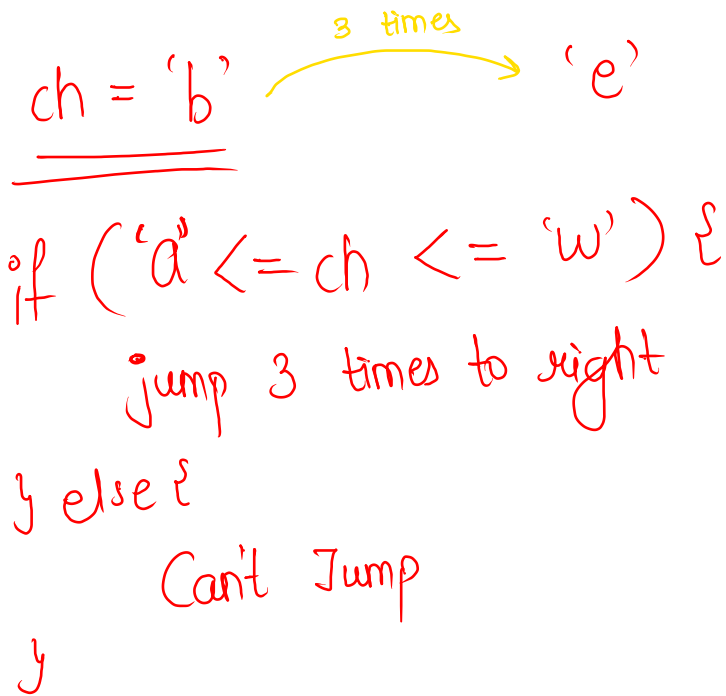 3 times
ch = 'b' 'e'
if ('a' <= ch <= 'w') {
jump 3 times to right
} else {
Can't Jump
}